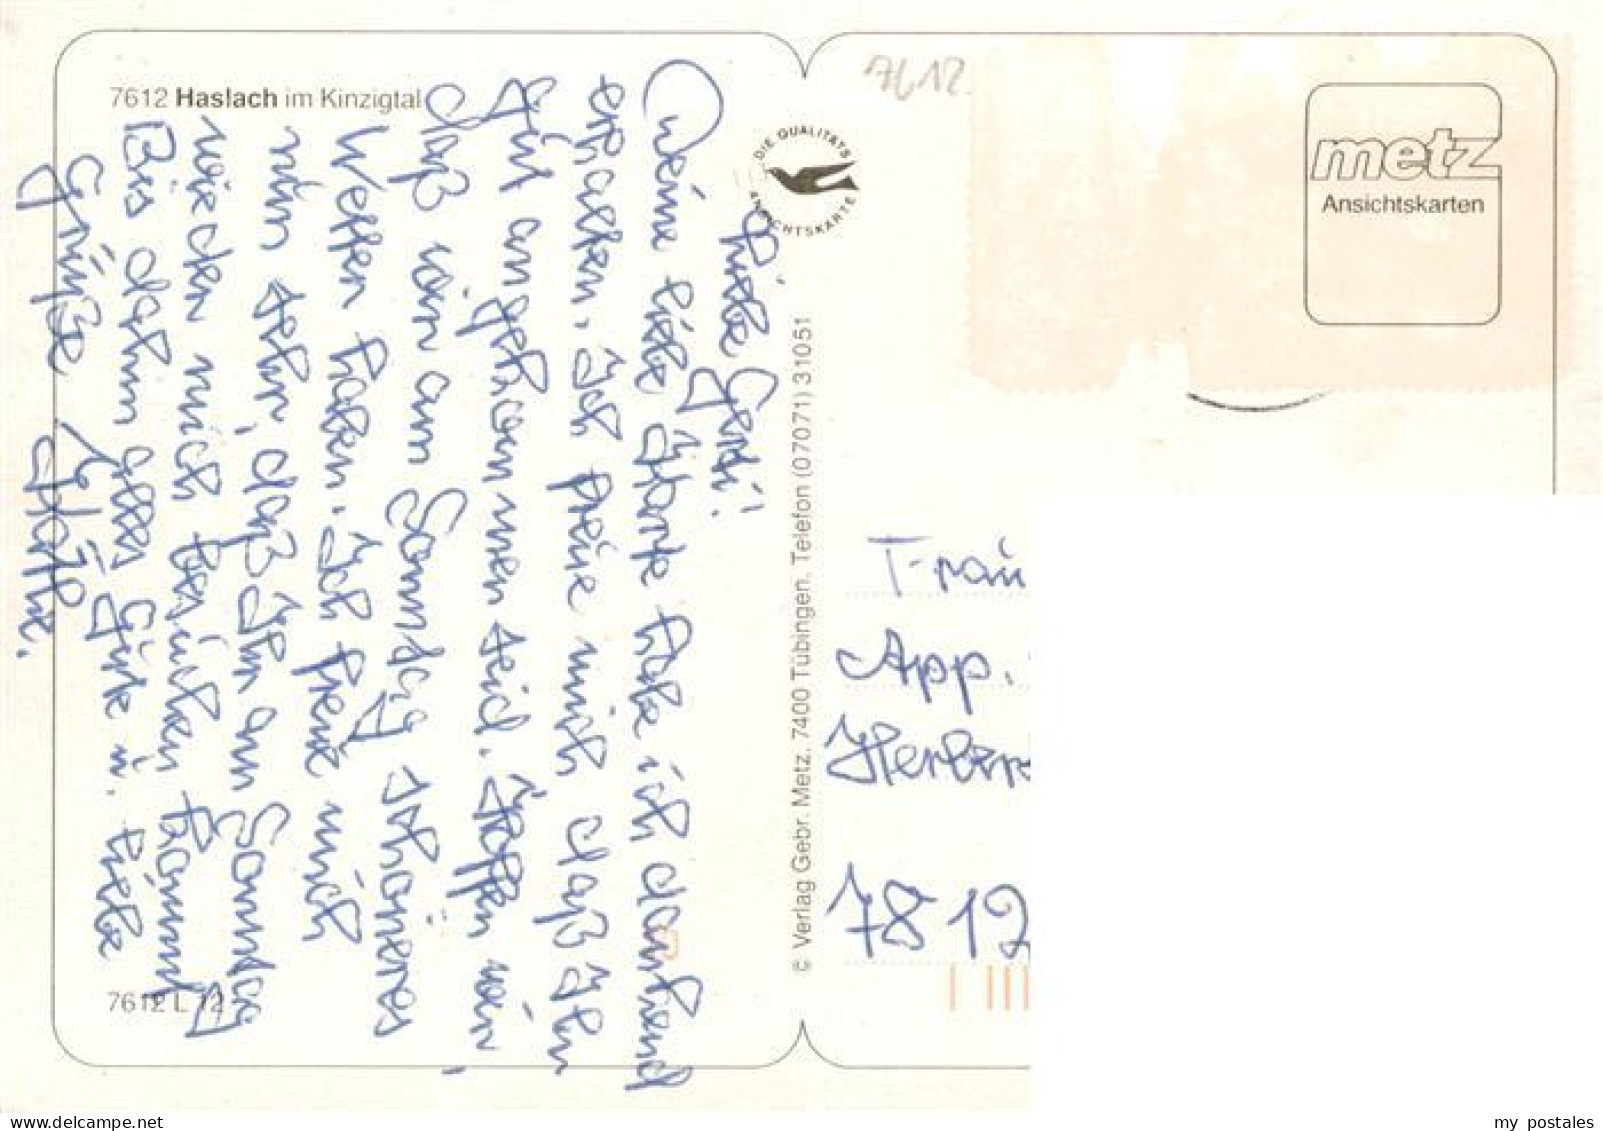 7612 Haslach im Kinzigtal
7612
DIE QUALITÄTS
ANSICHTSKARTE
metz
Ansichtskarten
Liebe Gerdi!
Deine liebe Karte habe ich dankend
erhalten. Ich freue mich daß Ihr
gut angekommen seid. Hoffen wir,
daß wir am Sonntag schöneres
Wetter haben. Ich freue mich
nun sehr, daß Ihr am Sonntag
wieder mich besuchen kommt
Bis dahin alles Gute u. liebe
Grüße
© Verlag Gebr. Metz, 7400 Tübingen, Telefon (07071) 31051
Frau
App.
7812
7612 L 12
my postales
delcampe.net